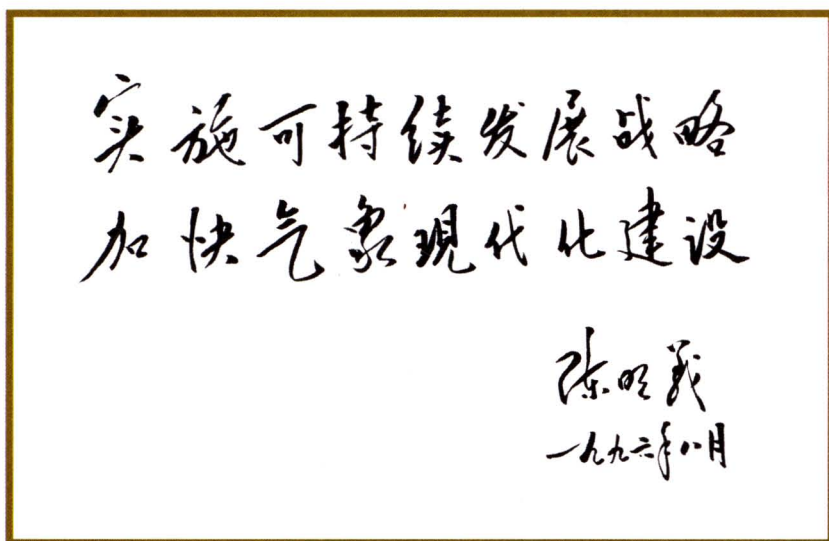 实施可持续发展战略
加快气象現代化建设
陈明义
一九九六年八月